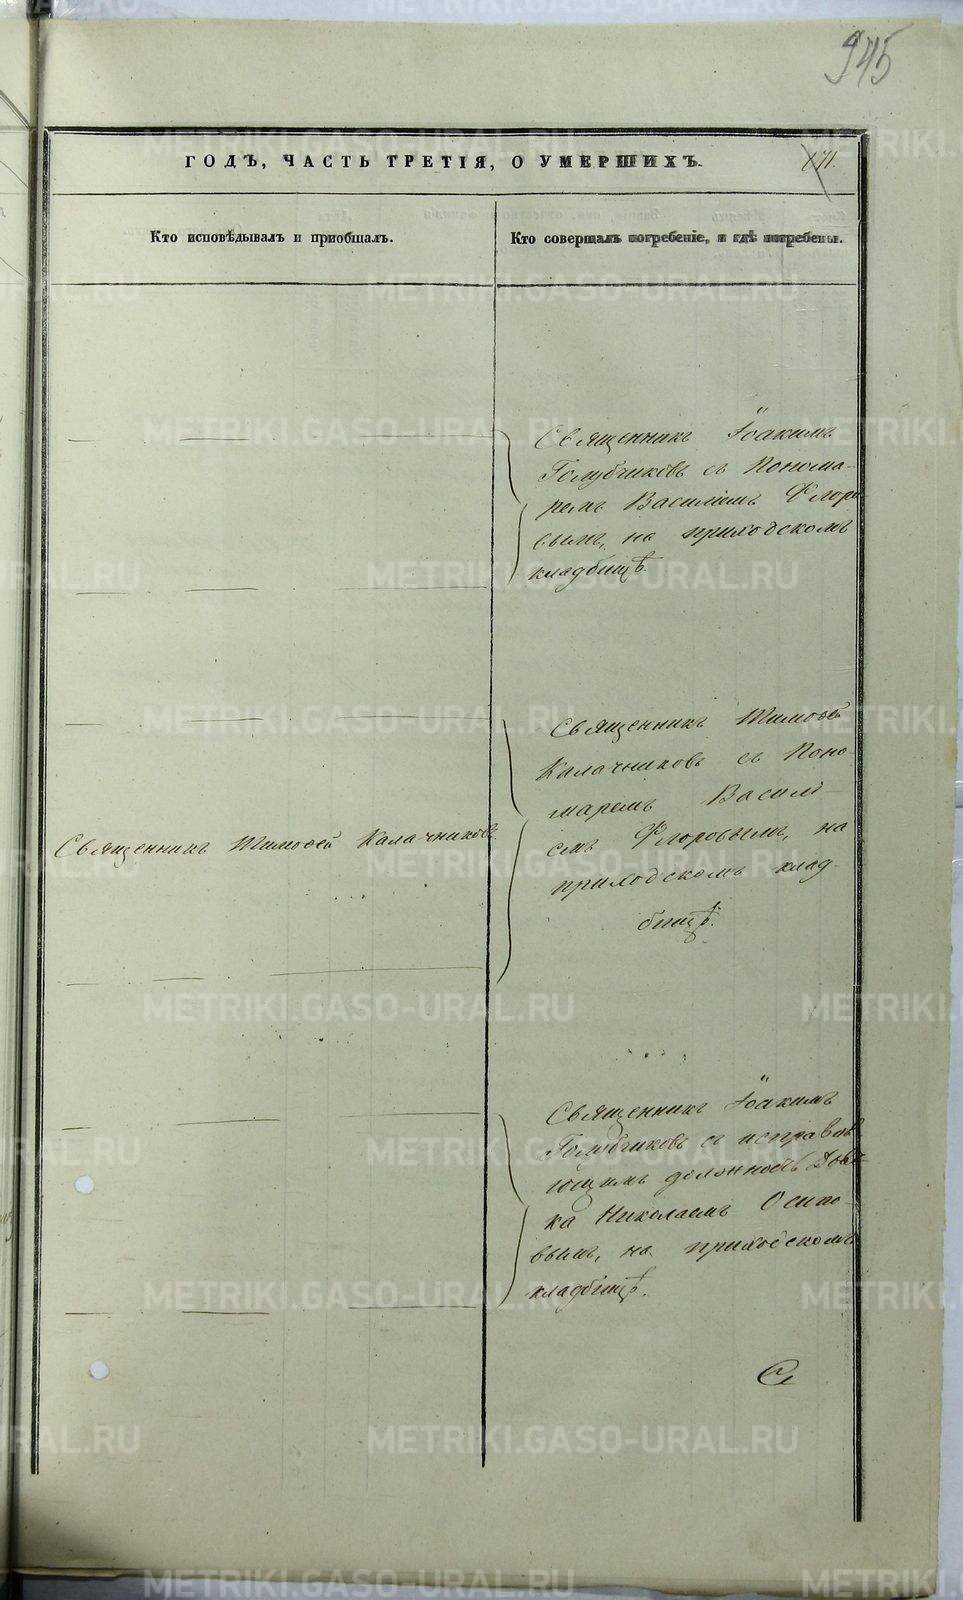 945
ГОДЪ, ЧАСТЬ ТРЕТІЯ, О УМЕРШИХЪ.
171.
Кто исповѣдывалъ и приобщалъ.
Кто совершалъ погребеніе, и гдѣ погребены.
Священникъ Іоакимъ
Голубчиковъ съ Понома-
ремъ Василіемъ Флоро
вымъ, на приходскомъ
кладбищѣ.
Священникъ Тимоѳей
Калачниковъ съ Поно-
маремъ Василі-
емъ Флоровымъ, на
приходскомъ клад-
бищѣ.
Священникъ Тимоѳей Калачниковъ.
Священникъ Іоакимъ
Голубчиковъ съ исправля
ющимъ должность Дьяч-
ка Николаемъ Осипо-
вымъ, на приходскомъ
кладбищѣ.
METRIKI.GASO-URAL.RU